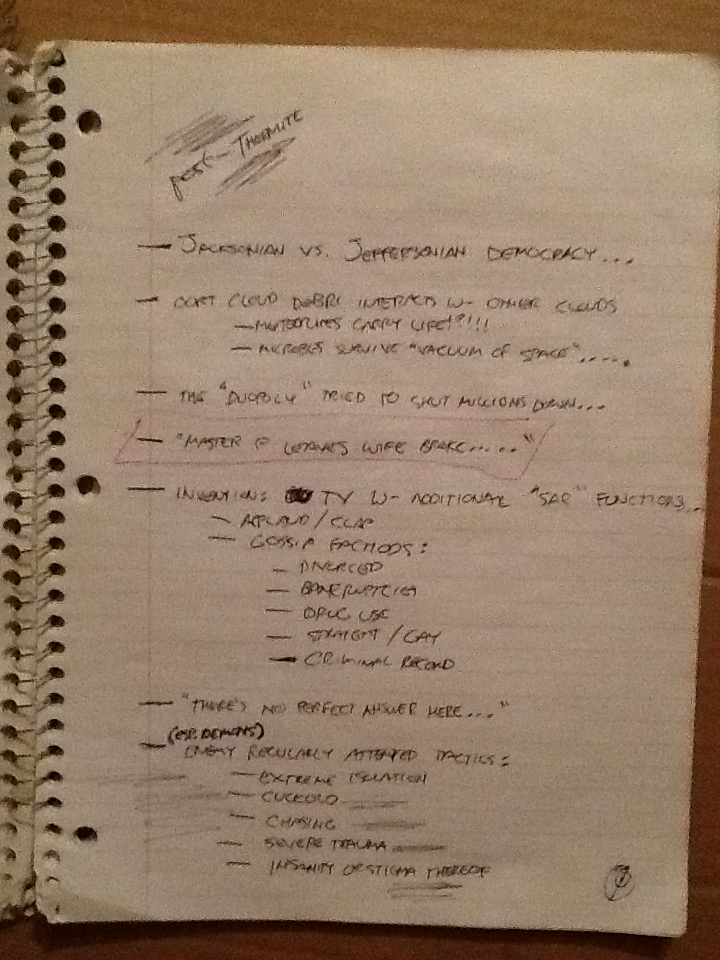 post- THERMITE
— JACKSONIAN VS. JEFFERSONIAN DEMOCRACY...
— OORT CLOUD DEBRI INTERACTS W- OTHER CLOUDS
— METEORITES CARRY LIFE!?!!!
— MICROBES SURVIVE "VACUUM OF SPACE".....
— THE "DUOPOLY" TRIED TO SHUT MILLIONS DOWN...
— "MASTER P LEAVES WIFE BROKE....."
— INVENTION: TV W- ADDITIONAL "SAP" FUNCTIONS...
— APPLAUD / CLAP
— GOSSIP FACTOIDS:
— DIVORCED
— BANKRUPTCIES
— DRUG USE
— STRAIGHT / GAY
— CRIMINAL RECORD
— "THERE'S NO PERFECT ANSWER HERE..."
(ESP. DEMONS)
— ENEMY REGULARLY ATTEMTED TACTICS:
— EXTREME ISOLATION
— CUCKOLD
— CHASING
— SEVERE TRAUMA
— INSANITY OR STIGMA THEREOF